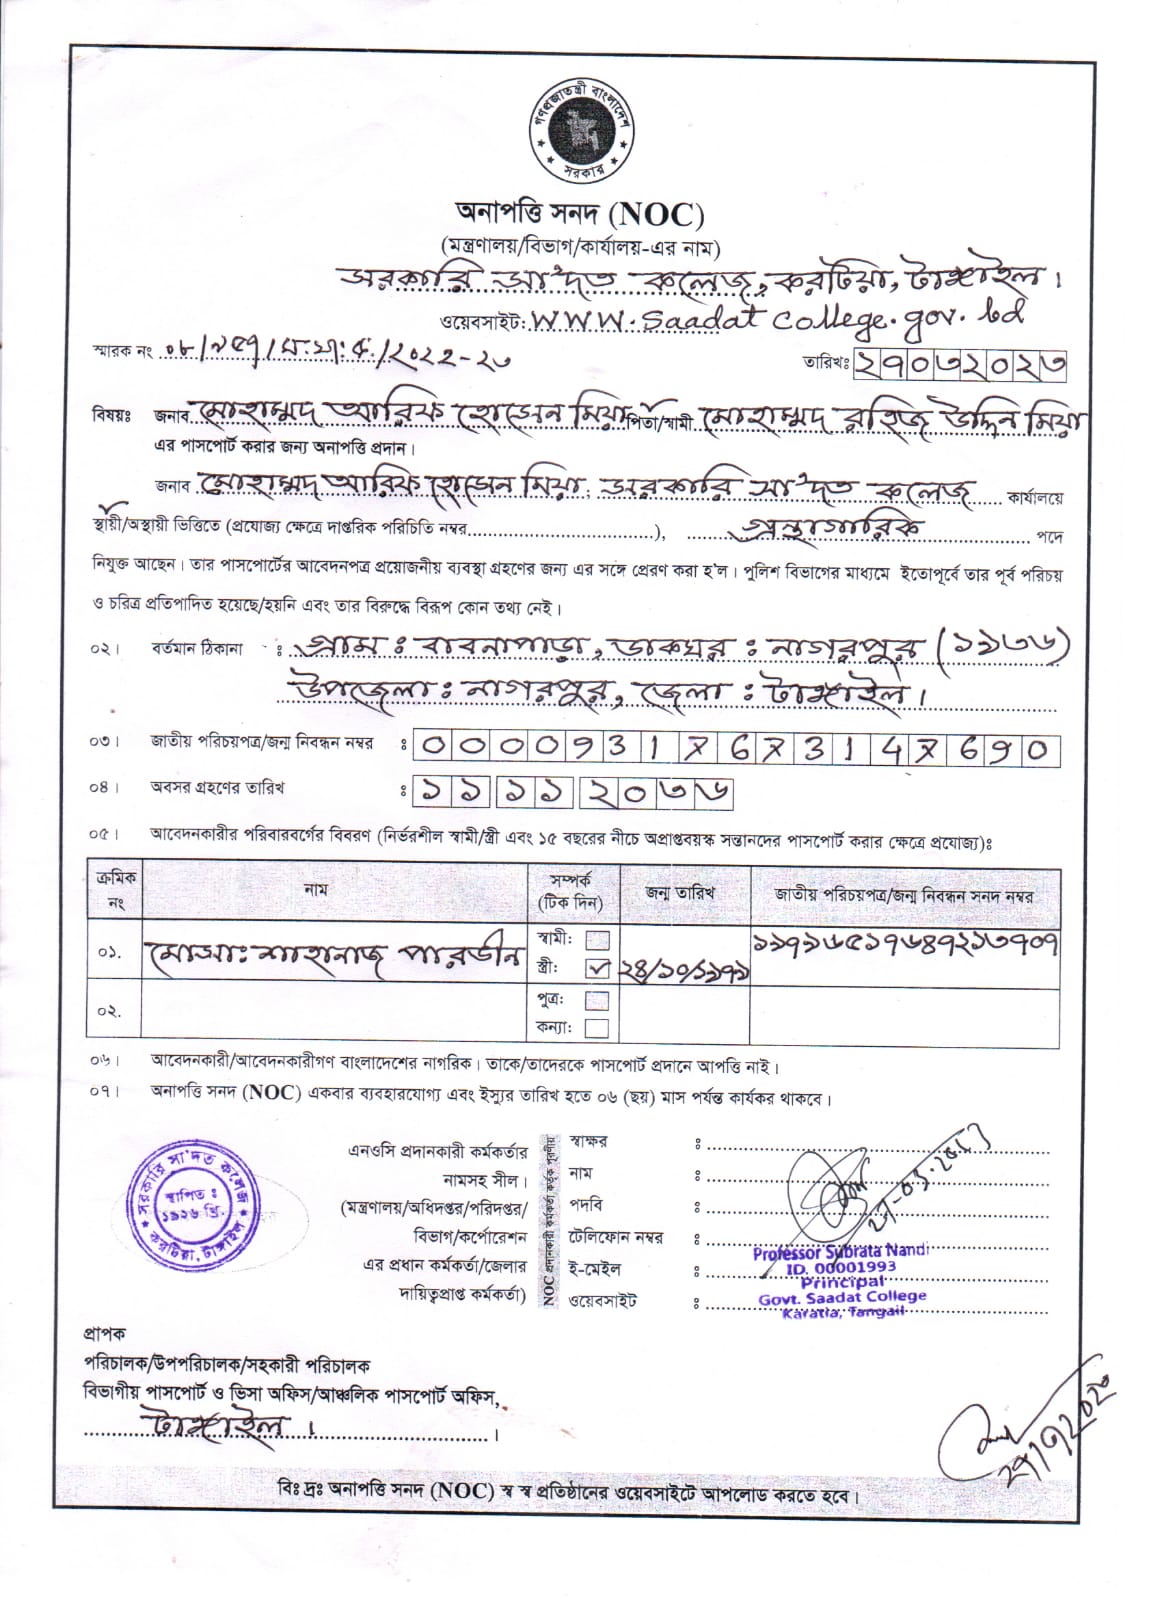 গণপ্রজাতন্ত্রী বাংলাদেশ
সরকার
অনাপত্তি সনদ (NOC)
(মন্ত্রণালয়/বিভাগ/কার্যালয়-এর নাম)
সরকারি সা'দত কলেজ, করটিয়া, টাঙ্গাইল।
ওয়েবসাইট: WWW.Saadat College.gov.bd
স্মারক নং /২০২২-২৩
তারিখঃ ২৭০৩২০২৩
বিষয়ঃ জনাব মোহাম্মদ আরিফ হোসেন মিয়া পিতা/স্বামী মোহাম্মদ রহিজ উদ্দিন মিয়া
এর পাসপোর্ট করার জন্য অনাপত্তি প্রদান।
জনাব মোহাম্মদ আরিফ হোসেন মিয়া, সরকারি সা'দত কলেজ কার্যালয়ে
স্থায়ী/অস্থায়ী ভিত্তিতে (প্রযোজ্য ক্ষেত্রে দাপ্তরিক পরিচিতি নম্বর..............................), গ্রন্থাগারিক পদে
নিযুক্ত আছেন। তার পাসপোর্টের আবেদনপত্র প্রয়োজনীয় ব্যবস্থা গ্রহণের জন্য এর সঙ্গে প্রেরণ করা হ'ল। পুলিশ বিভাগের মাধ্যমে ইতোপূর্বে তার পূর্ব পরিচয়
ও চরিত্র প্রতিপাদিত হয়েছে/হয়নি এবং তার বিরুদ্ধে বিরূপ কোন তথ্য নেই।
০২। বর্তমান ঠিকানা : গ্রাম : বাবনাপাড়া, ডাকঘর : নাগরপুর (১৯৩৬)
উপজেলা : নাগরপুর, জেলা : টাঙ্গাইল।
০৩। জাতীয় পরিচয়পত্র/জন্ম নিবন্ধন নম্বর : 00009317673147690
০৪। অবসর গ্রহণের তারিখ : ১১১১২০৩৬
০৫। আবেদনকারীর পরিবারবর্গের বিবরণ (নির্ভরশীল স্বামী/স্ত্রী এবং ১৫ বছরের নীচে অপ্রাপ্তবয়স্ক সন্তানদের পাসপোর্ট করার ক্ষেত্রে প্রযোজ্য)ঃ
ক্রমিক নং নাম সম্পর্ক (টিক দিন) জন্ম তারিখ জাতীয় পরিচয়পত্র/জন্ম নিবন্ধন সনদ নম্বর
০১. মোসাঃ শাহানাজ পারভীন স্বামী:
স্ত্রী: ✓ ২৪/১০/১৯৭৯
০২. পুত্র:
কন্যা:
০৬। আবেদনকারী/আবেদনকারীগণ বাংলাদেশের নাগরিক। তাকে/তাদেরকে পাসপোর্ট প্রদানে আপত্তি নাই।
০৭। অনাপত্তি সনদ (NOC) একবার ব্যবহারযোগ্য এবং ইস্যুর তারিখ হতে ০৬ (ছয়) মাস পর্যন্ত কার্যকর থাকবে।
সরকারি সা'দত কলেজ
স্থাপিত :
১৯২৬ খ্রি.
করটিয়া, টাঙ্গাইল
এনওসি প্রদানকারী কর্মকর্তার
নামসহ সীল।
(মন্ত্রণালয়/অধিদপ্তর/পরিদপ্তর/
বিভাগ/কর্পোরেশন
এর প্রধান কর্মকর্তা/জেলার
দায়িত্বপ্রাপ্ত কর্মকর্তা)
NOC প্রদানকারী কর্মকর্তা কর্তৃক পূরণীয়
স্বাক্ষর :
নাম :
পদবি :
টেলিফোন নম্বর :
ই-মেইল :
ওয়েবসাইট :
Professor Subrata Nandi
ID. 00001993
Principal
Govt. Saadat College
Karatia, Tangail
প্রাপক
পরিচালক/উপপরিচালক/সহকারী পরিচালক
বিভাগীয় পাসপোর্ট ও ভিসা অফিস/আঞ্চলিক পাসপোর্ট অফিস,
টাঙ্গাইল।
বিঃ দ্রঃ অনাপত্তি সনদ (NOC) স্ব স্ব প্রতিষ্ঠানের ওয়েবসাইটে আপলোড করতে হবে।